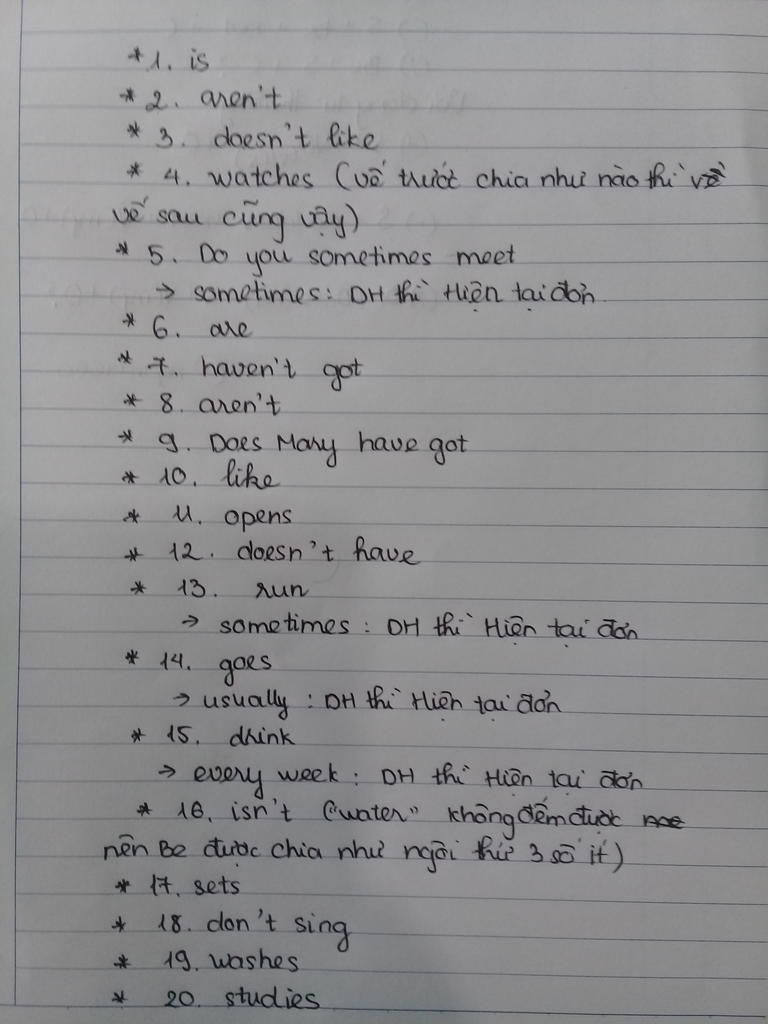 * 1. is
* 2. aren't
* 3. doesn't like
* 4. watches (vế trước chia như nào thì
vế sau cũng vậy)
* 5. Do you sometimes meet
→ sometimes: DH thì Hiện tại đơn
* 6. are
* 7. haven't got
* 8. aren't
* 9. Does Mary have got
* 10. like
* 11. opens
* 12. doesn't have
* 13. run
→ sometimes : DH thì Hiện tại đơn
* 14. goes
→ usually : DH thì Hiện tại đơn
* 15. drink
→ every week : DH thì Hiện tại đơn
* 16. isn't ("water" không đếm được
nên Be được chia như ngôi thứ 3 số ít)
* 17. sets
* 18. don't sing
* 19. washes
* 20. studies